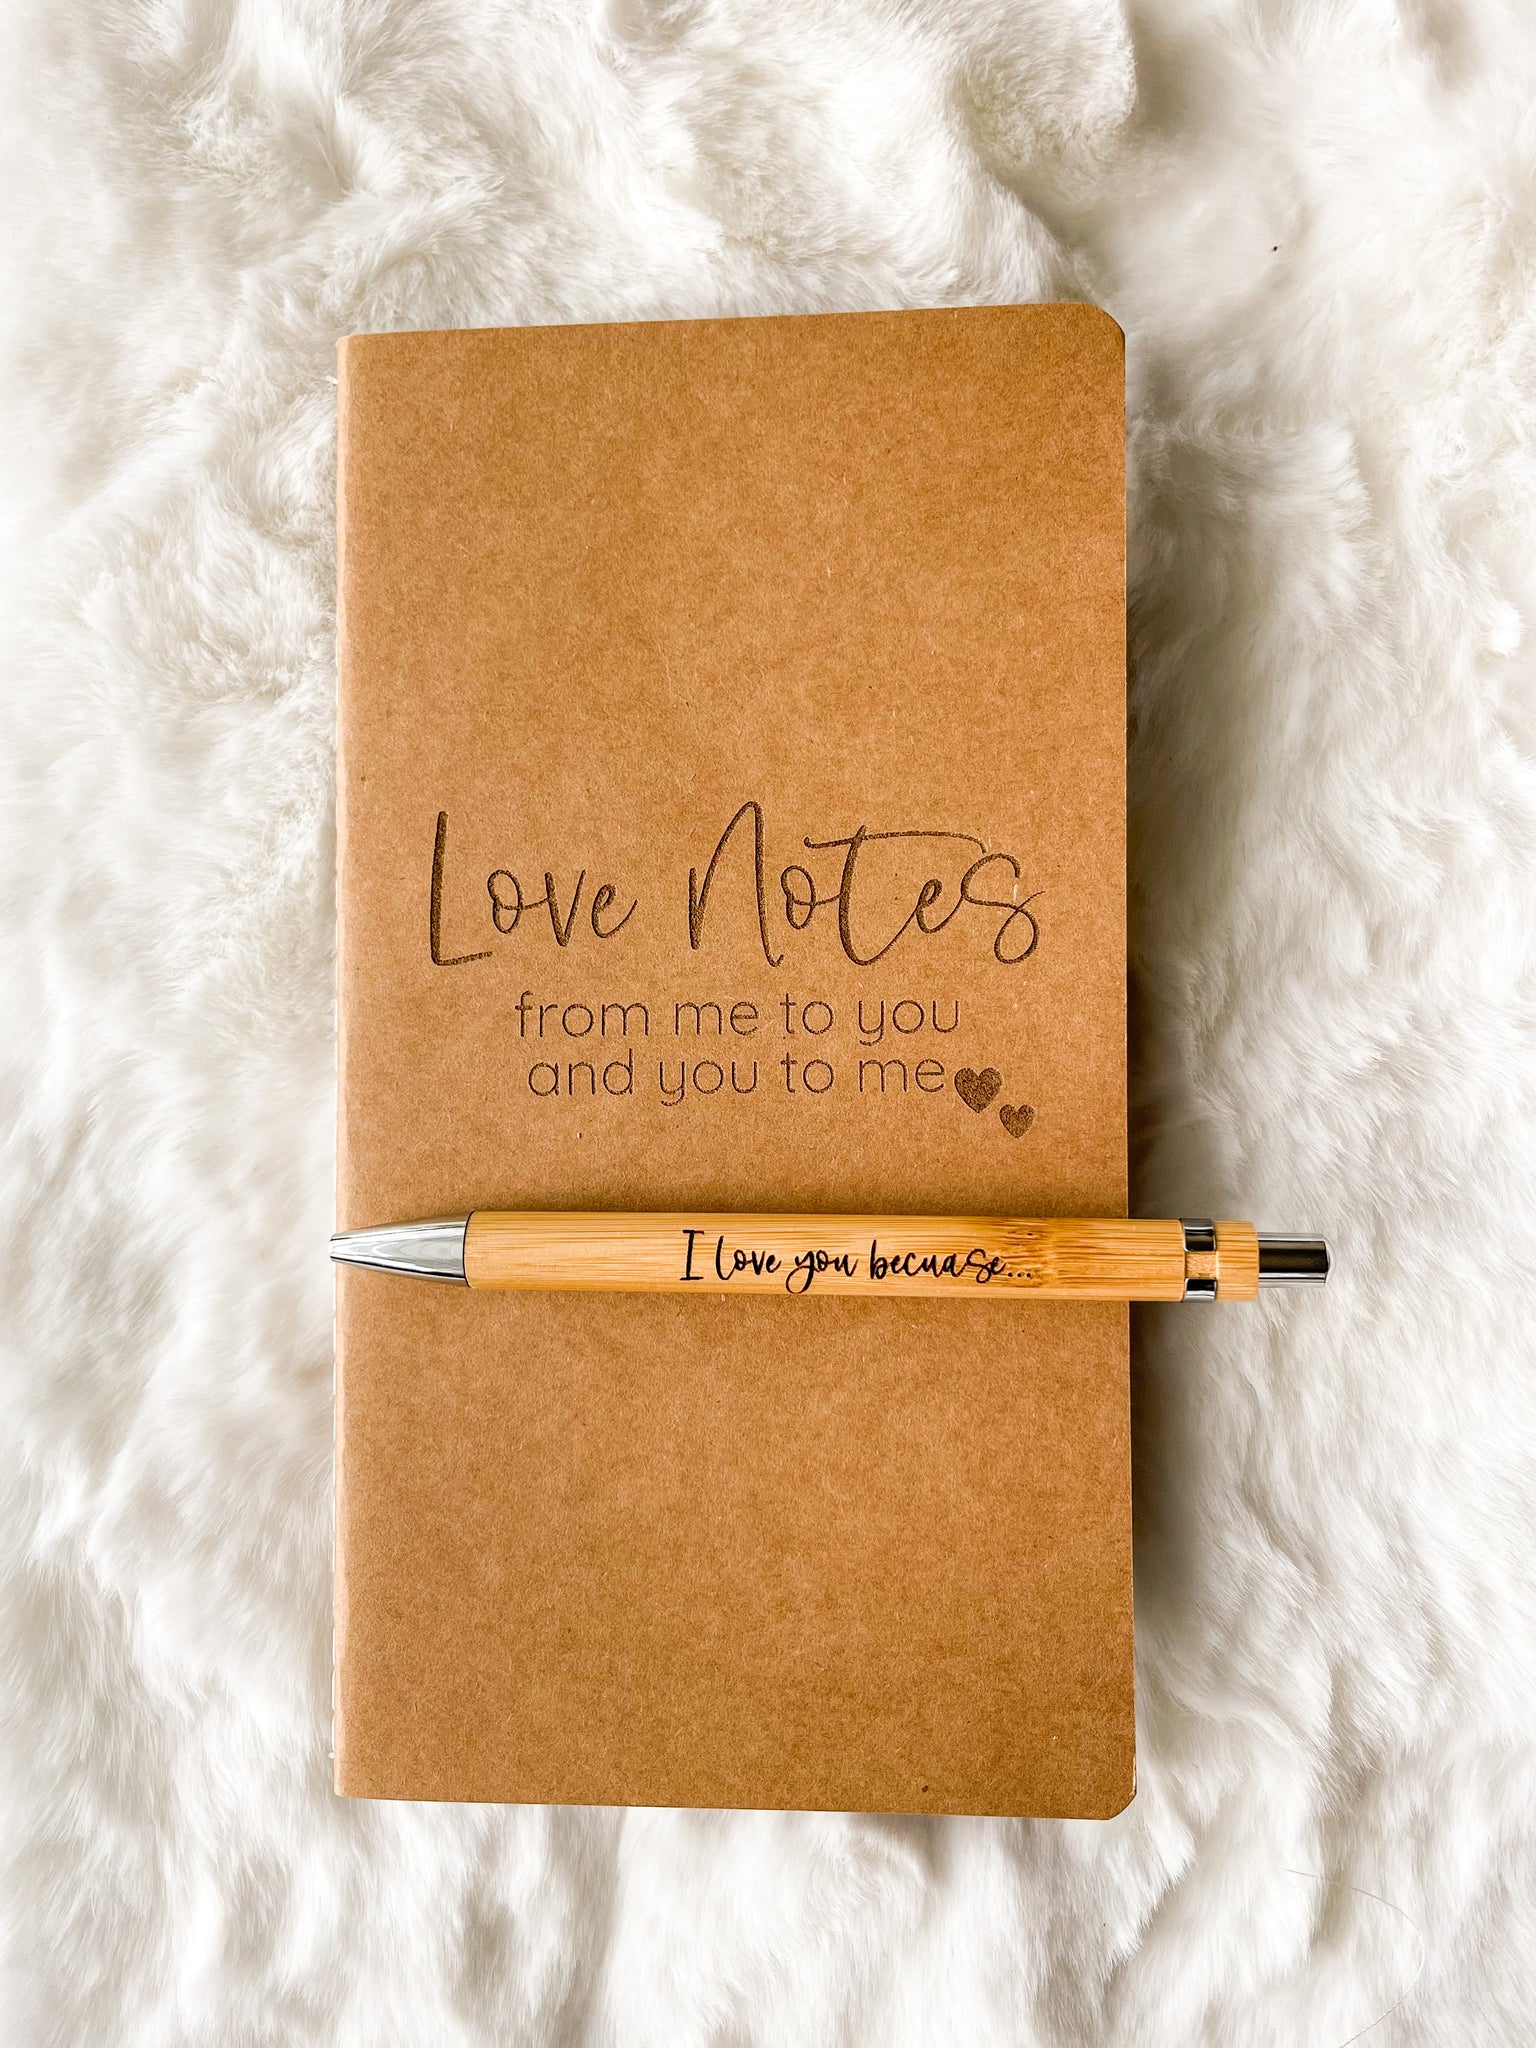 Love Notes
from me to you
and you to me
I love you becuase...